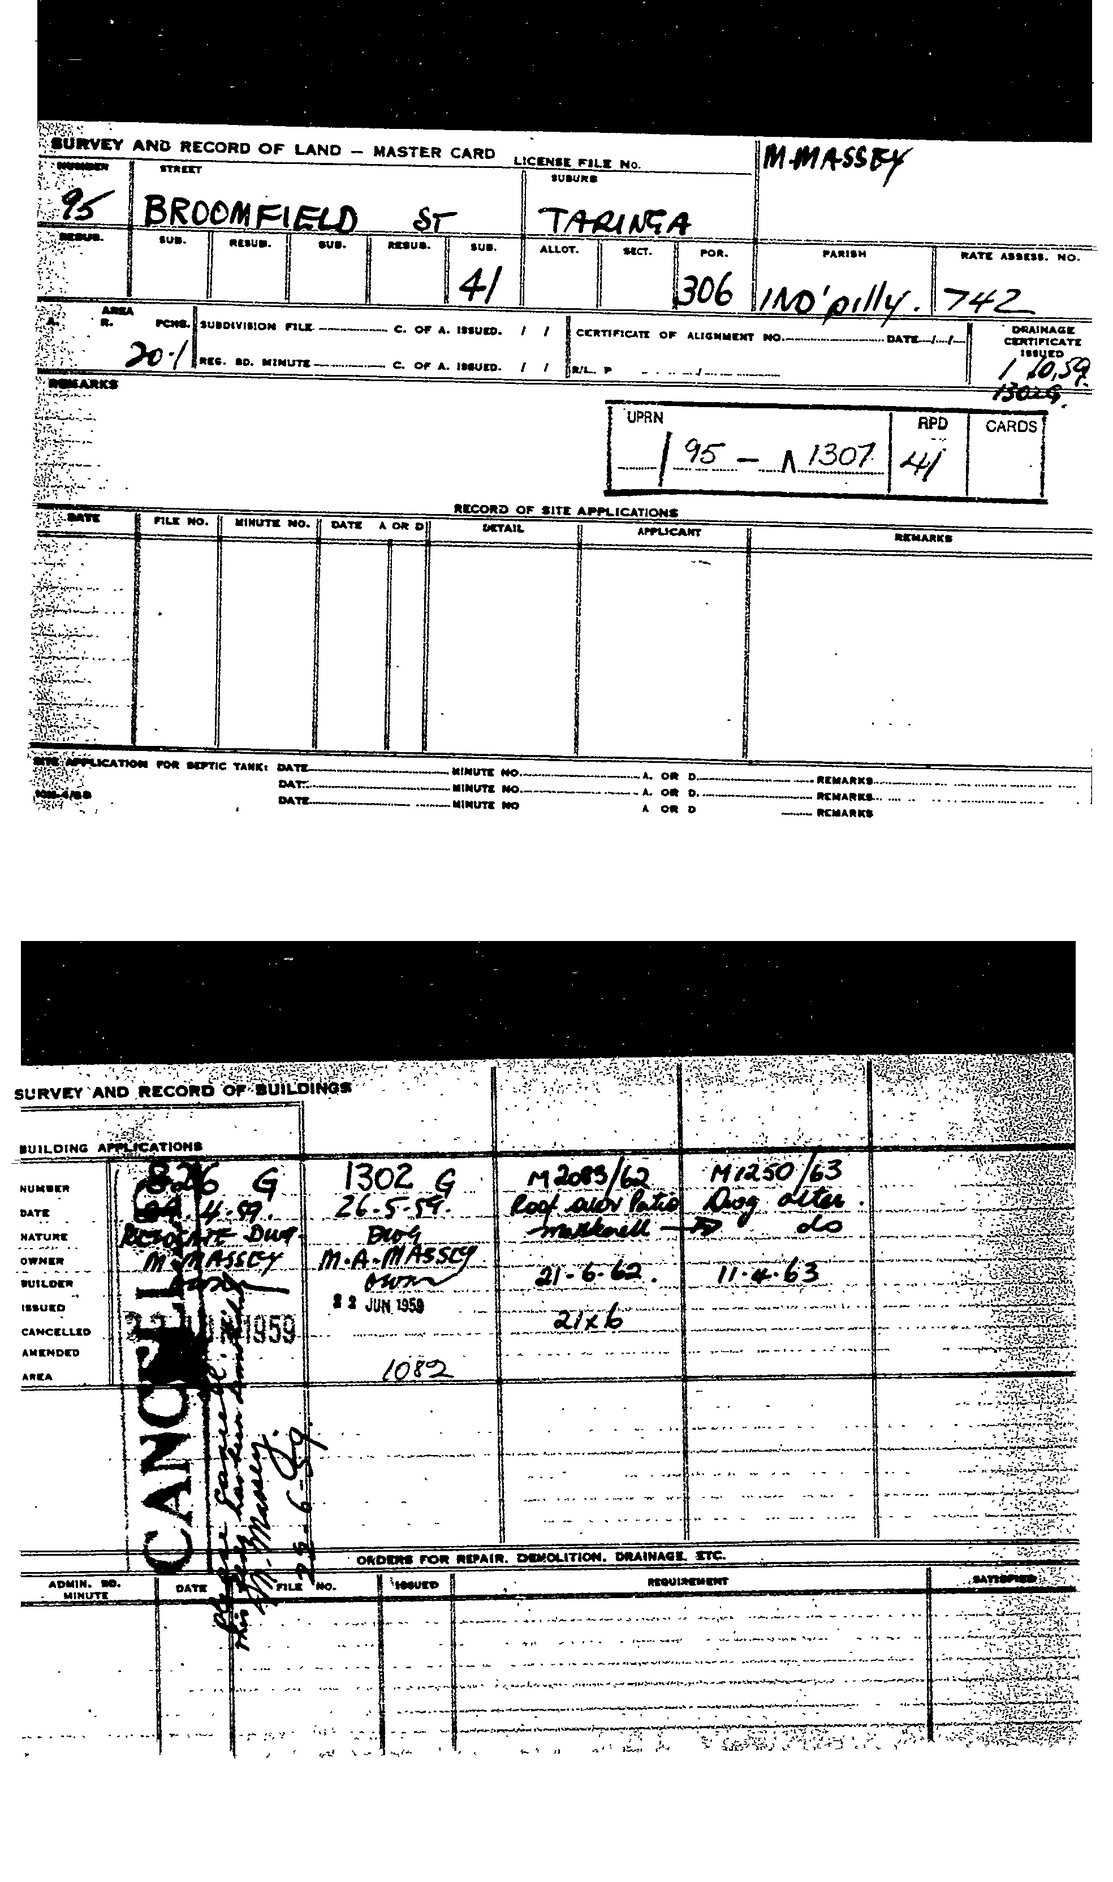 SURVEY AND RECORD OF LAND — MASTER CARD LICENSE FILE No. M. MASSEY
NUMBER STREET SUBURB
95 BROOMFIELD ST TARINGA
RESUB. SUB. RESUB. SUB. RESUB. SUB. ALLOT. SECT. POR. PARISH RATE ASSESS. NO.
41 306 IND'pilly. 742
AREA
A. R. PCHS. SUBDIVISION FILE C. OF A. ISSUED. / / CERTIFICATE OF ALIGNMENT NO. DATE / / DRAINAGE CERTIFICATE ISSUED
20.1 REG. BD. MINUTE C. OF A. ISSUED. / / R/L. P / 1.10.59.
REMARKS 1302G.
UPRN RPD CARDS
/ 95 — 1307 41
RECORD OF SITE APPLICATIONS
DATE FILE NO. MINUTE NO. DATE A OR D DETAIL APPLICANT REMARKS
SITE APPLICATION FOR SEPTIC TANK: DATE MINUTE NO. A. OR D. REMARKS
DATE MINUTE NO. A. OR D. REMARKS
DATE MINUTE NO A OR D REMARKS
SURVEY AND RECORD OF BUILDINGS
BUILDING APPLICATIONS
NUMBER 826 G 1302 G M2083/62 M1250/63
DATE 4.59. 26.5.59. Roof over Patio Dwg alter.
NATURE RELOCATE DWG DWG do
OWNER M. MASSEY M.A. MASSEY
BUILDER own 21-6-62. 11.4.63
ISSUED 22 JUN 1959
CANCELLED JUN 1959 21x6
AMENDED
AREA 1082
CANCELLED
Please cancel
this
M. Massey.
22.6.59.
ORDERS FOR REPAIR. DEMOLITION. DRAINAGE. ETC.
ADMIN. BD. MINUTE DATE FILE NO. ISSUED REQUIREMENT SATISFIED